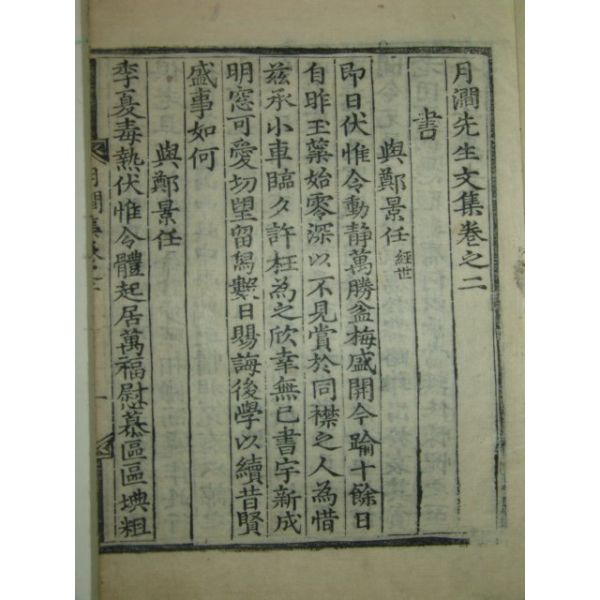 月澗先生文集卷之二
書
與鄭景任 經世
即日伏惟令動靜萬勝盆梅盛開今踰十餘日
自昨玉蘂始零深以不見賞於同襟之人為惜
玆承小車臨久許枉為之欣幸無已書宇新成
明窓可愛切望留舃數日賜誨後學以續昔賢
盛事如何
與鄭景任
李夏毒熱伏惟令體起居萬福慰慕區區㙉粗